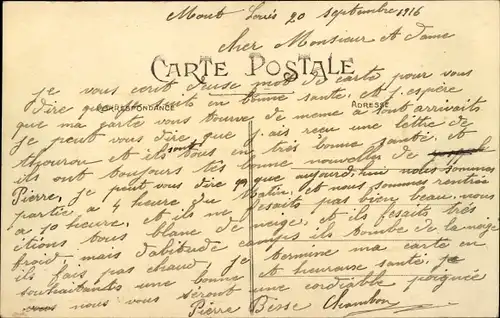 Mont Louis 20 septembre 1916
cher Monsieur et dame
CARTE POSTALE
je vous ecrit deuse mot de carte pour vous
CORRESPONDANCE
ADRESSE
dire que suit en bonne sante, et j'espère
que ma carte vous trouve de meme a tout arrivait
je peut vous dire, que j'ais reçu une lettre de
et ils sont tous en très bonne santé, et
ils ont toujours très bonne nouvelles de
Pierre, je peut vous dire que aujourd'hui nous sommes
partie a 4 heure du matin, et nous sommes rentrée
a 10 heure, et il ne fesaits pas bien beau, nous
étions tous blanc de neige, et ils fesaits très
froid, mais d'abitude ils tombe de la neige
ils fais pas chaud, je termine ma carte en
souhaitants une bonne et heureuse sante, je
vous seront une cordiable poignée
Pierre Bisse Chambon